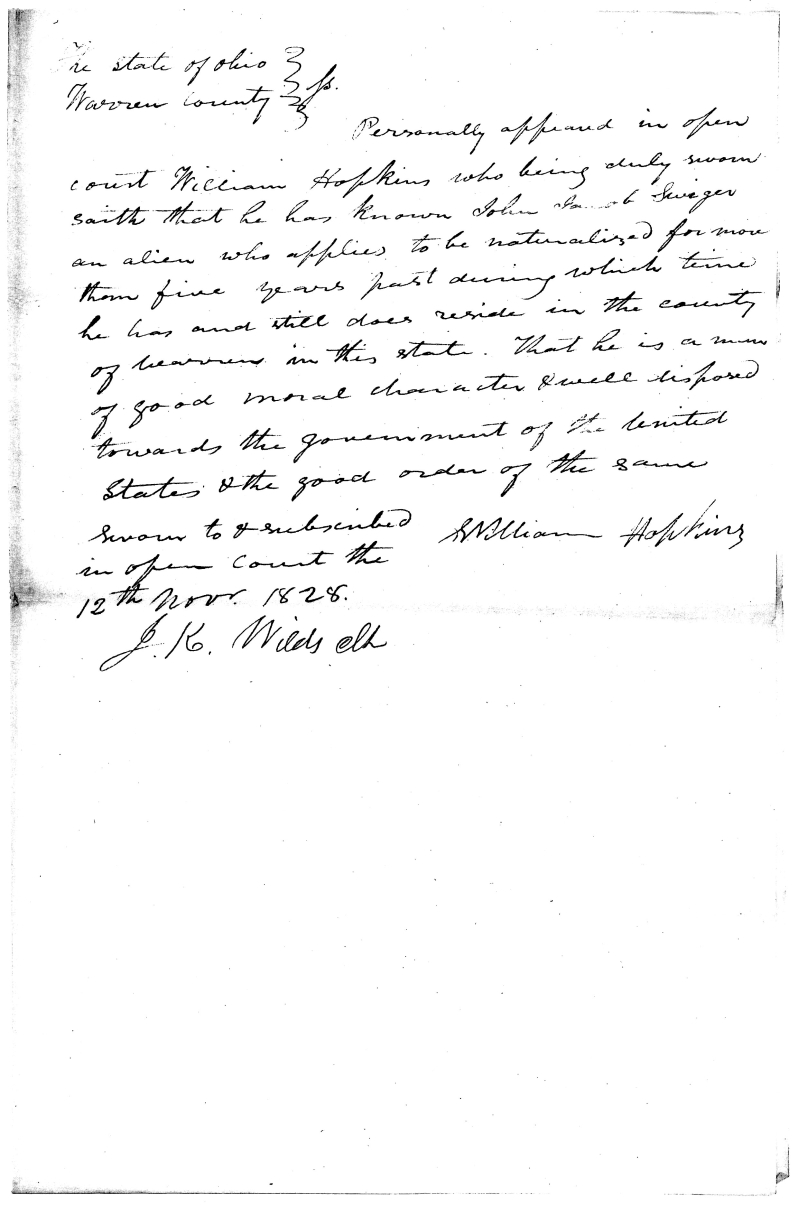 The state of Ohio }
Warren County } ss.
Personally appeared in open
court William Hopkins who being duly sworn
saith that he has known John Jacob Swizer
an alien who applies to be naturalized for more
than five years past during which time
he has and still does reside in the county
of warren in this state. That he is a man
of good moral character & well disposed
towards the government of the United
States & the good order of the same
Sworn to & subscribed William Hopkins
in open Court the
12th Novr. 1828.
J. K. Wilds clk